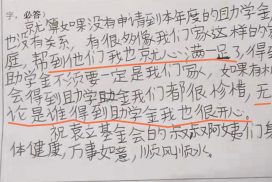 字，必答）
就算如果没有申请到本年度的助学金
也没有关系，有很多像我们家这样的家
庭，帮到他们我也就心满一足了，得到
助学金不须要一定是我们家，如果有机
会得到助学金我们都很珍惜，无
论是谁得到助学金我也很开心。
祝袁立基金会的叔叔阿姨们身
体健康，万事如意，顺风顺水。